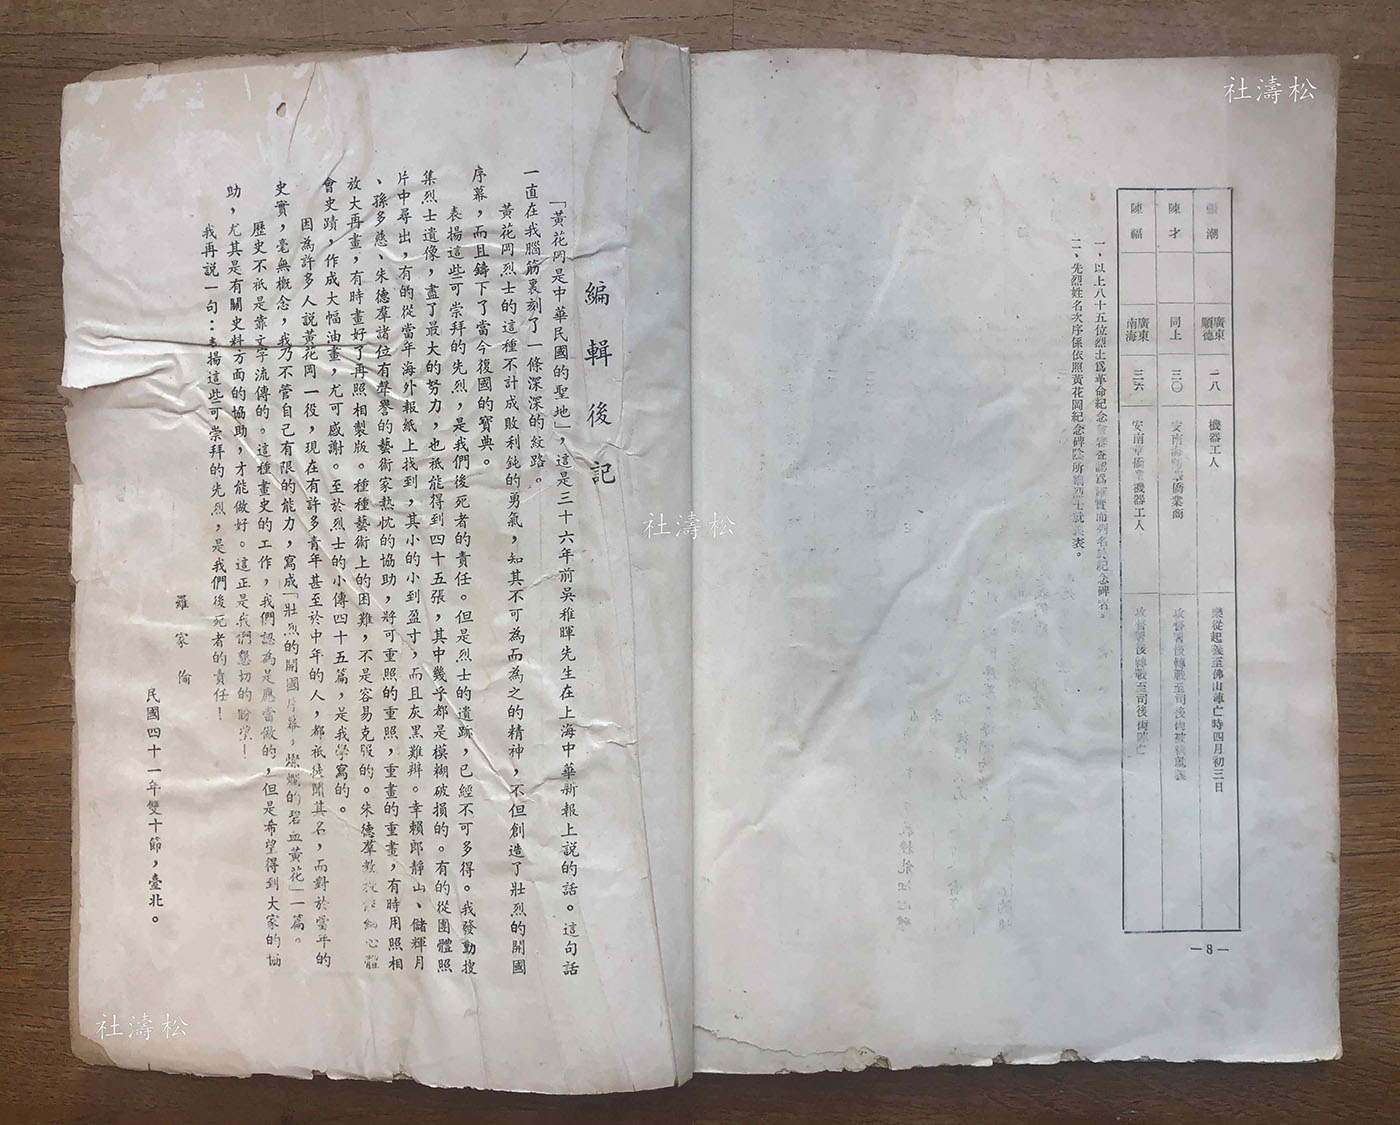 張潮 廣東順德 二八 機器工人 樂從起義至佛山陣亡時四月初三日
陳才 同上 三〇 安南海防華僑業商 攻督署後轉戰至司後街被執就義
陳福 廣東南海 三六 安南華僑業機器工人 攻督署後轉戰至司後街陣亡
一、以上八十五位烈士爲革命紀念會審查認爲確實而列名於紀念碑者。
二、先烈姓名次序係依照黃花岡紀念碑陰所鐫烈士就義表。
—8—
編輯後記
「黃花岡是中華民國的聖地」,這是三十六年前吳稚暉先生在上海中華新報上說的話。這句話
一直在我腦筋裏刻了一條深深的紋路。
黃花岡烈士的這種不計成敗利鈍的勇氣,知其不可為而為之的精神,不但創造了壯烈的開國
序幕,而且鑄下了當今復國的寶典。
表揚這些可崇拜的先烈,是我們後死者的責任。但是烈士的遺跡,已經不可多得。我發動搜
集烈士遺像,盡了最大的努力,也祇能得到四十五張,其中幾乎都是模糊破損的。有的從團體照
片中尋出,有的從當年海外報紙上找到,其小的小到盈寸,而且灰黑難辨。幸賴郎靜山、儲輝月
、孫多慈、朱德羣諸位有聲譽的藝術家熱忱的協助,將可重照的重照,重畫的重畫,有時用照相
放大再畫,有時畫好了再照相製版。種種藝術上的困難,不是容易克服的。朱德羣教授能細心體
會史蹟,作成大幅油畫,尤可感謝。至於烈士的小傳四十五篇,是我學寫的。
因為許多人說黃花岡一役,現在有許多青年甚至於中年的人,都祇徒聞其名,而對於當年的
史實,毫無概念,我乃不管自己有限的能力,寫成「壯烈的開國序幕,燦爛的碧血黃花」一篇。
歷史不祇是靠文字流傳的。這種畫史的工作,我們認為是應當做的,但是希望得到大家的協
助,尤其是有關史料方面的協助,才能做好。這正是我們懇切的盼望!
我再說一句:表揚這些可崇拜的先烈,是我們後死者的責任!
羅家倫
民國四十一年雙十節,臺北。
社濤松
社濤松
社濤松